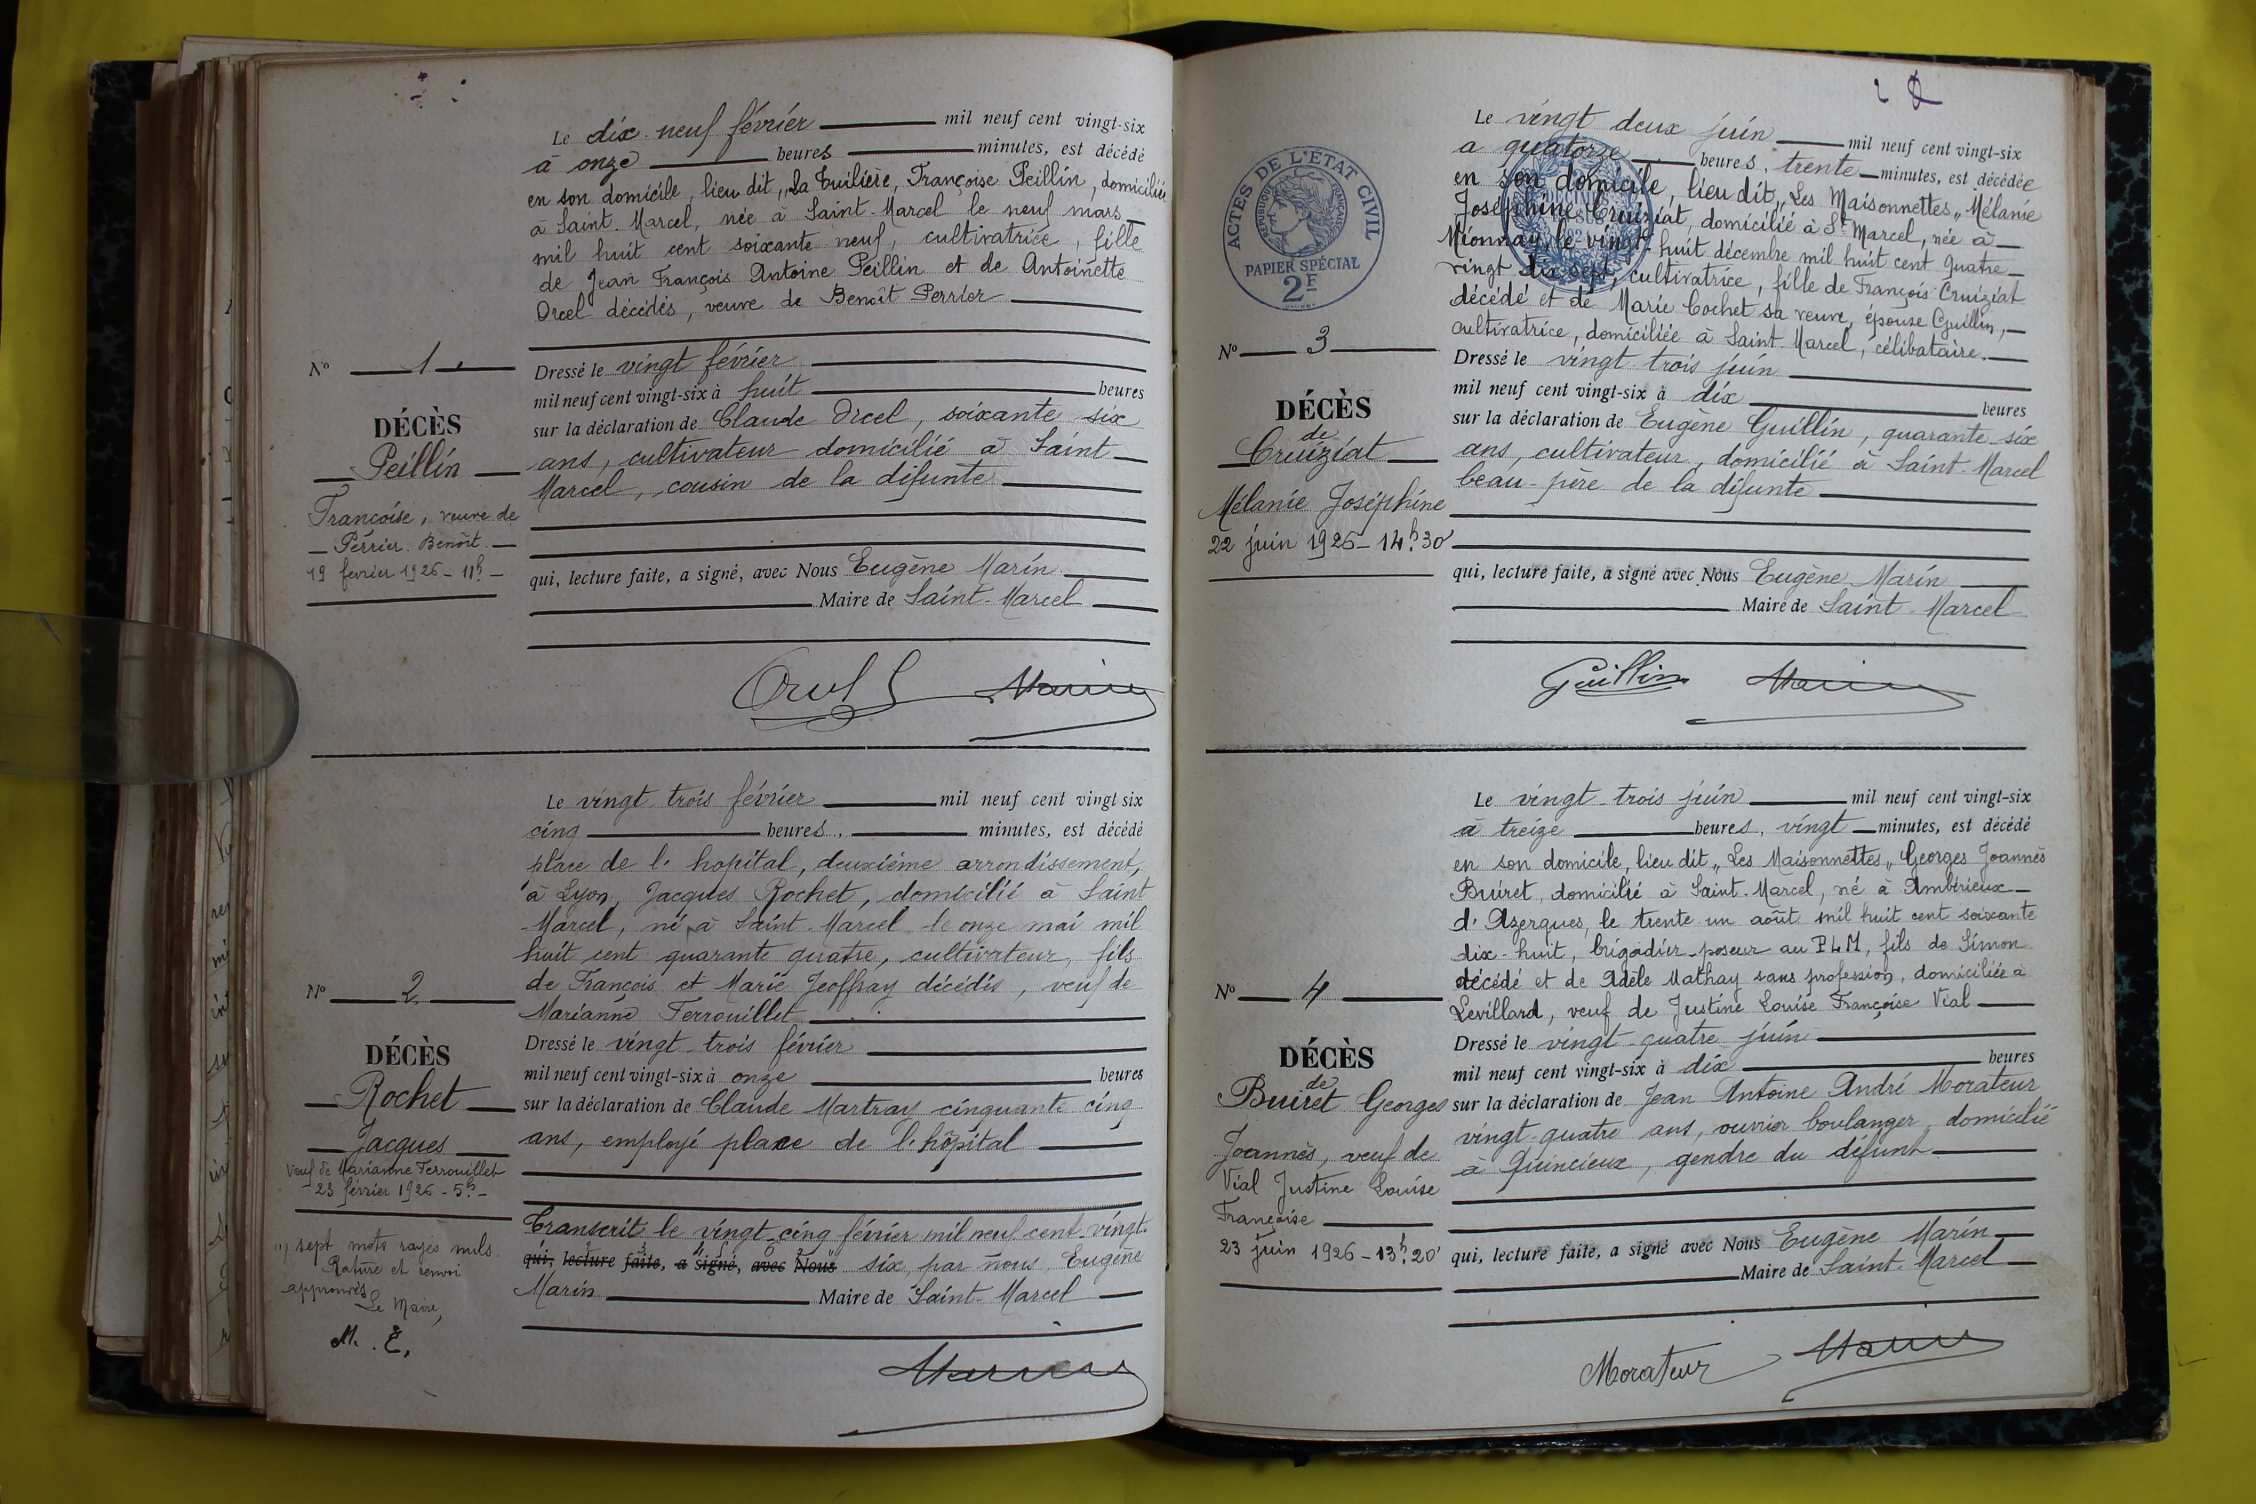 Le dix-neuf février mil neuf cent vingt-six
à onze heures minutes, est décédé
en son domicile, lieu dit „La Tuilière, Françoise Peillin, domiciliée
à Saint-Marcel, née à Saint-Marcel le neuf mars
mil huit cent soixante neuf, cultivatrice, fille
de Jean François Antoine Peillin et de Antoinette
Orcel décédés, veuve de Benoît Perrier
Nº 1
DÉCÈS
Peillin
Françoise, veuve de
Perrier Benoît
19 février 1926 - 11h -
Dressé le vingt février
mil neuf cent vingt-six à huit heures
sur la déclaration de Claude Orcel, soixante six
ans, cultivateur domicilié à Saint
Marcel, cousin de la défunte
qui, lecture faite, a signé, avec Nous Eugène Marin
Maire de Saint-Marcel
Orcel Marin
Le vingt trois février mil neuf cent vingt six
cinq heures, minutes, est décédé
place de l'hopital, deuxième arrondissement,
à Lyon, Jacques Rochet, domicilié à Saint
Marcel, né à Saint-Marcel le onze mai mil
huit cent quarante quatre, cultivateur, fils
de François et Marie Jeoffray décédés, veuf de
Marianne Ferrouillet
Nº 2
DÉCÈS
Rochet
Jacques
Veuf de Marianne Ferrouillet
23 février 1926 - 5h -
Dressé le vingt-trois février
mil neuf cent vingt-six à onze heures
sur la déclaration de Claude Martray cinquante cinq
ans, employé place de l'hôpital
Transcrit le vingt-cinq février mil neuf cent vingt
qui, lecture faite, a signé, avec Nous six, par nous, Eugène
Marin Maire de Saint-Marcel
sept mots rayés nuls.
Rature et renvoi
approuvés
Le Maire,
M. E.
Marin
Le vingt deux juin mil neuf cent vingt-six
a quatorze heures, trente minutes, est décédée
en son domicile, lieu dit „Les Maisonnettes„ Mélanie
Joséphine Cruiziat, domiciliée à St Marcel, née à
Mionnay, le vingt-huit décembre mil huit cent quatre
vingt dix sept, cultivatrice, fille de François Cruiziat
décédé et de Marie Cochet sa veuve, épouse Guillin,
cultivatrice, domiciliée à Saint-Marcel, célibataire.
ACTES DE L'ÉTAT CIVIL
RÉPUBLIQUE FRANÇAISE
PAPIER SPÉCIAL
2F
Nº 3
DÉCÈS
de
Cruiziat
Mélanie Joséphine
22 juin 1926 - 14h30'
Dressé le vingt-trois juin
mil neuf cent vingt-six à dix heures
sur la déclaration de Eugène Guillin, quarante-six
ans, cultivateur, domicilié à Saint-Marcel
beau-père de la défunte
qui, lecture faite, a signé avec Nous Eugène Marin
Maire de Saint-Marcel
Guillin Marin
Le vingt-trois juin mil neuf cent vingt-six
à treize heures, vingt minutes, est décédé
en son domicile, lieu dit „Les Maisonnettes„ Georges Joannès
Buiret, domicilié à Saint-Marcel, né à Ambérieux
d'Azergues, le trente un août mil huit cent soixante
dix-huit, brigadier-poseur au PLM, fils de Simon
décédé et de Adèle Mathay sans profession, domiciliée à
Levillard, veuf de Justine Louise Françoise Vial
Nº 4
DÉCÈS
de
Buiret Georges
Joannès, veuf de
Vial Justine Louise
Françoise
23 juin 1926 - 13h20'
Dressé le vingt-quatre juin
mil neuf cent vingt-six à dix heures
sur la déclaration de Jean Antoine André Morateur
vingt-quatre ans, ouvrier boulanger, domicilié
à Quincieux, gendre du défunt
qui, lecture faite, a signé avec Nous Eugène Marin
Maire de Saint-Marcel
Morateur Marin